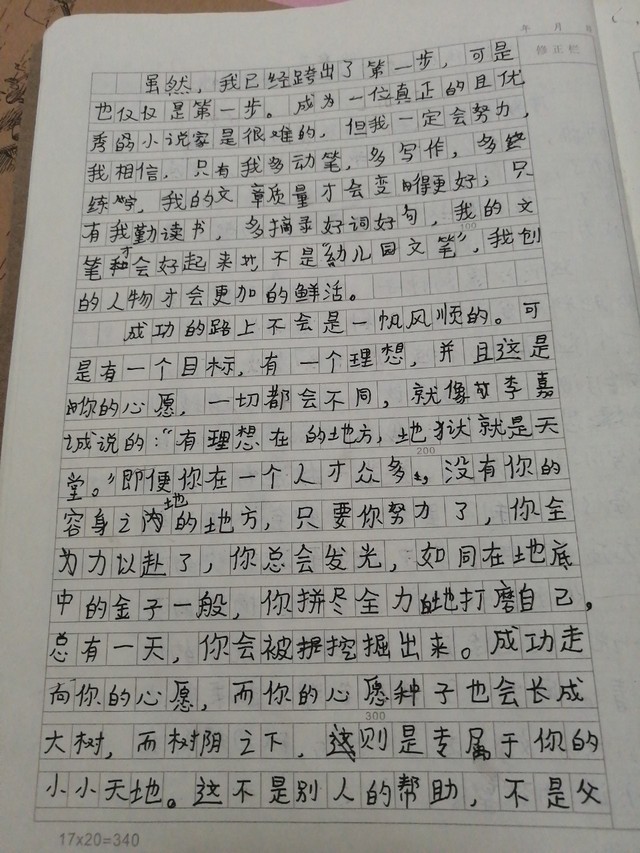 年 月 日
修正栏
虽然，我已经跨出了第一步，可是
也仅仅是第一步。成为一位真正的且优
秀的小说家是很难的，但我一定会努力，
我相信，只有我多动笔，多写作，多终
练字，我的文章质量才会变得更好；只
有我勤读书，多摘录好词好句，我的文
100
笔才会好起来地不是“幼儿园文笔”，我创
的人物才会更加的鲜活。
成功的路上不会是一帆风顺的。可
是有一个目标，有一个理想，并且这是
你的心愿，一切都会不同，就像李嘉
诚说的：“有理想在的地方，地狱就是天
200
堂。”即便你在一个人才众多，没有你的
容身之地的地方，只要你努力了，你全
力以赴了，你总会发光，如同在地底
中的金子一般，你拼尽全力地打磨自己，
总有一天，你会被挖掘出来。成功走
向你的心愿，而你的心愿种子也会长成
300
大树，而树阴之下，则是专属于你的
小小天地。这不是别人的帮助，不是父
17×20=340